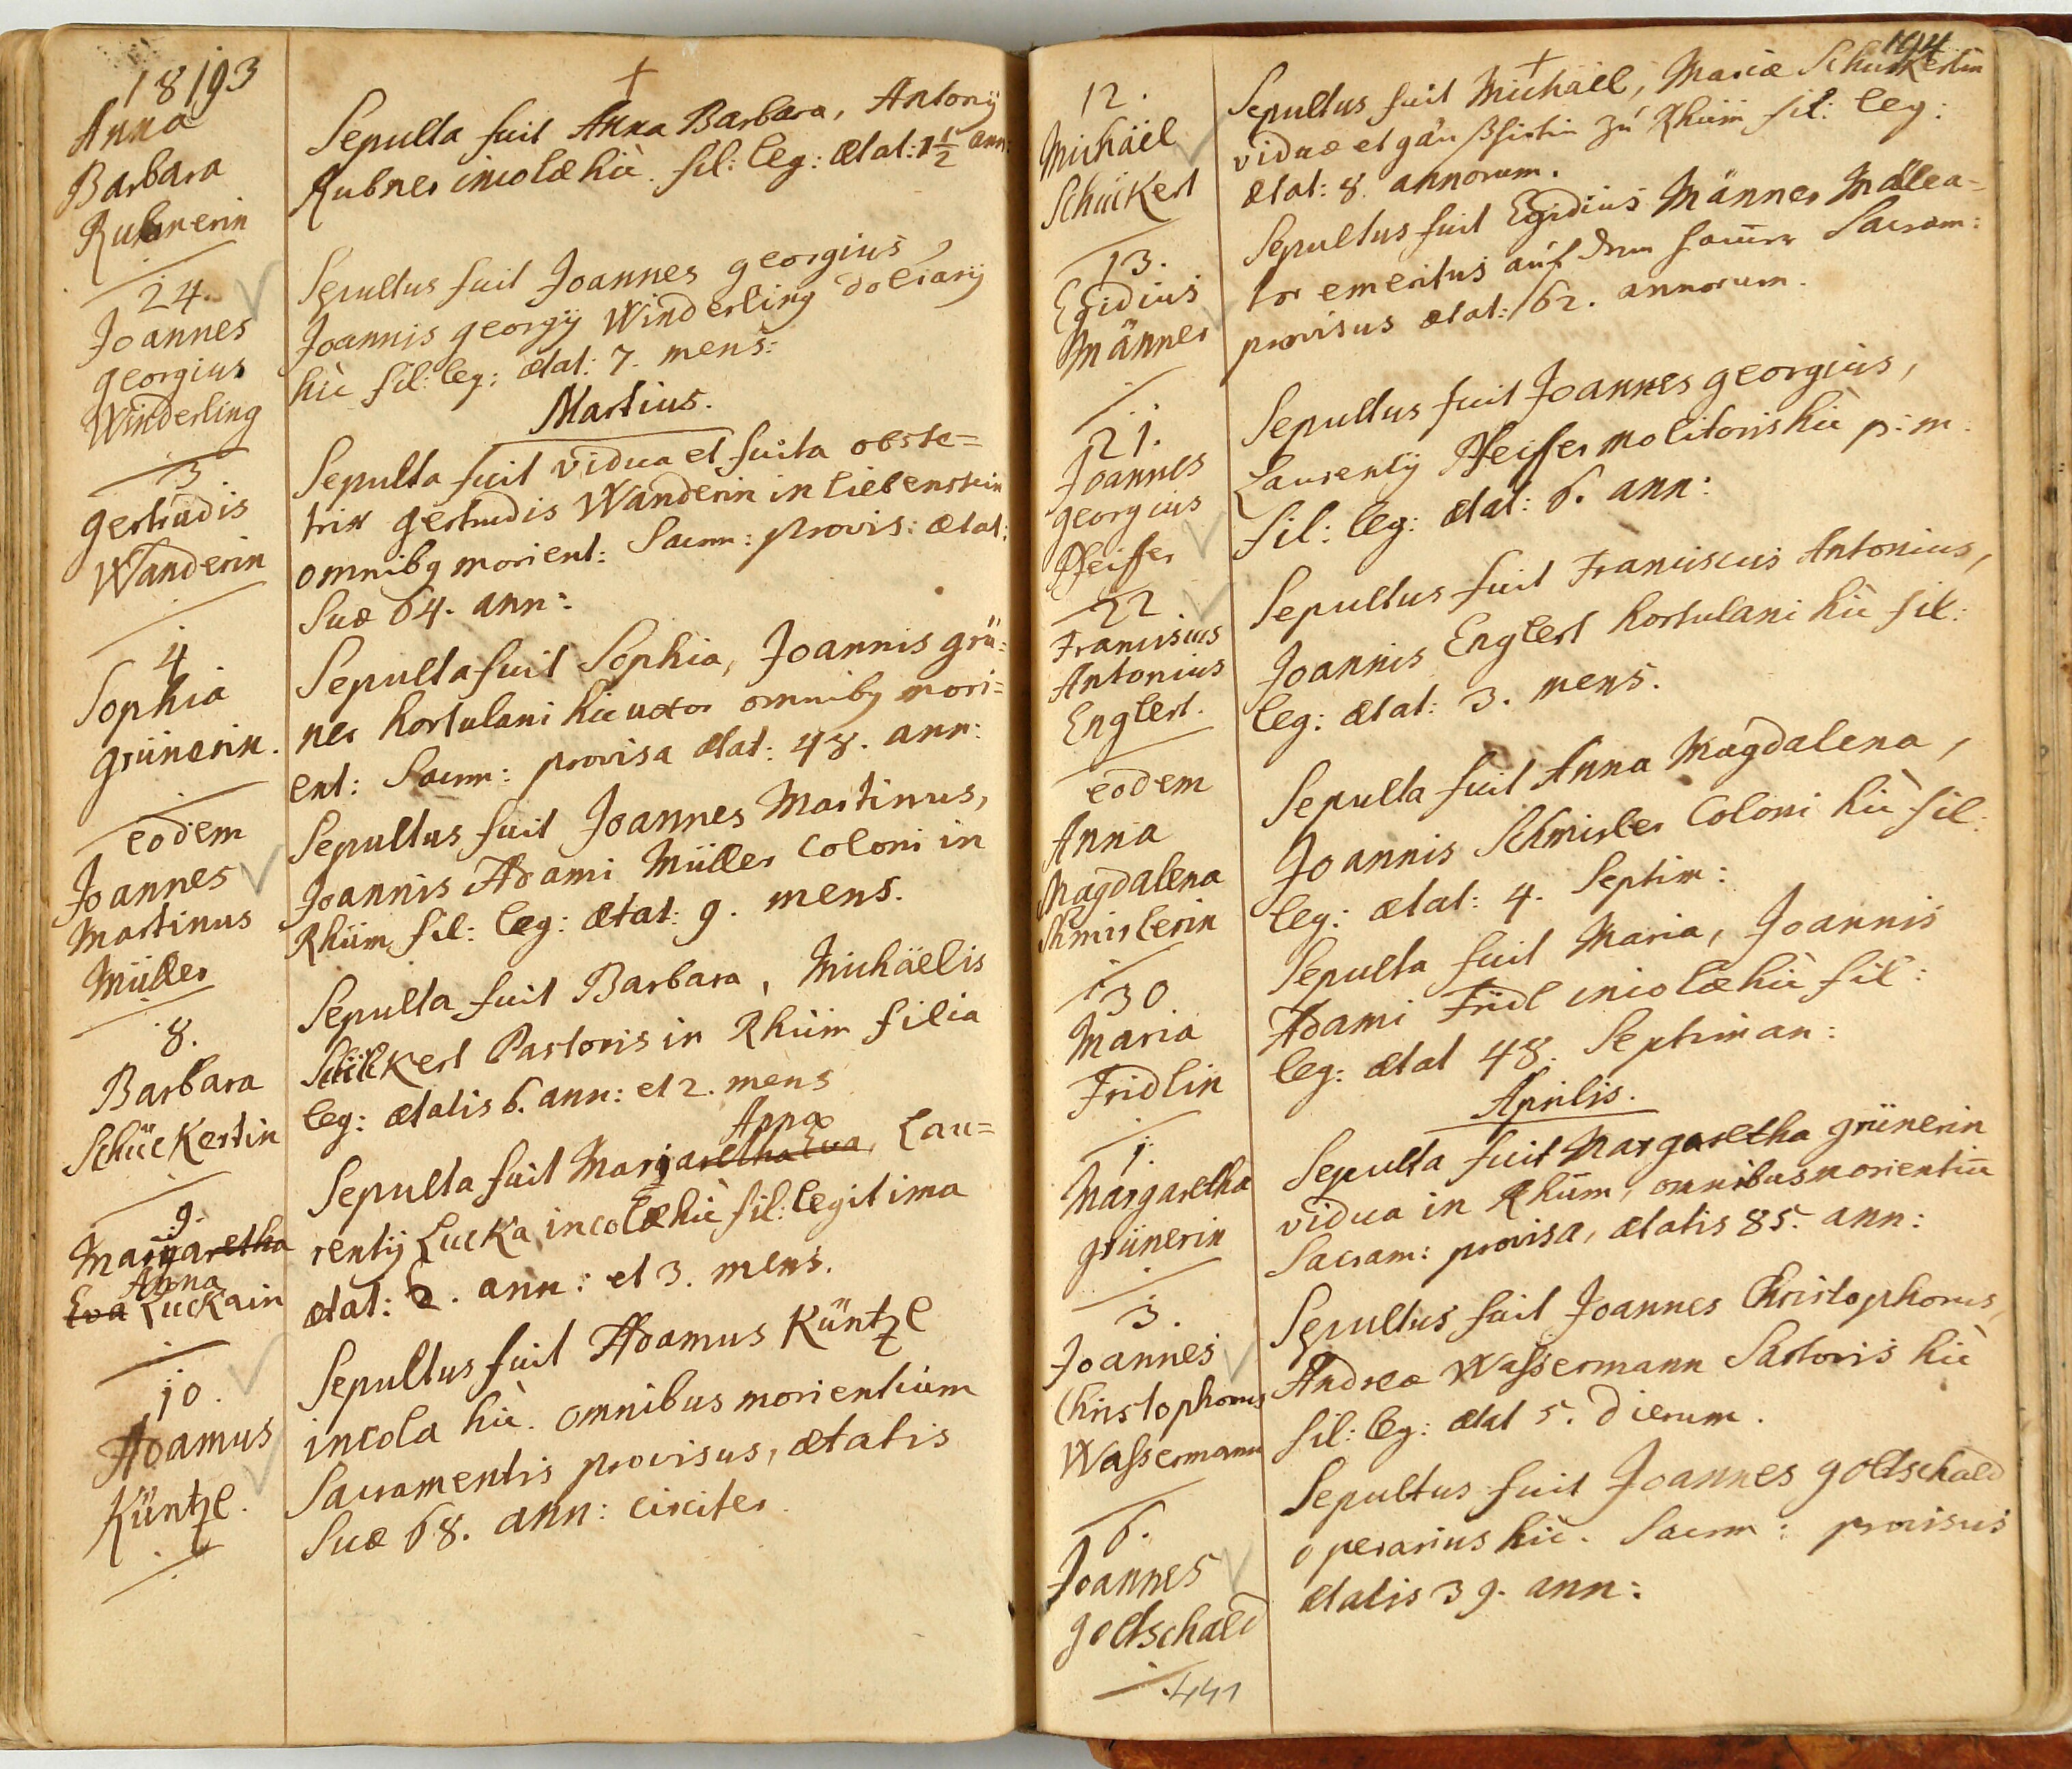 18 193
Anna
Barbara
Rubnerin
Sepulta fuit Anna Barbara, Antonÿ
Rubner incolæ hìc. fil: leg: ætat: 1 1/2 ann:
24.
Joannes
georgius
Winderling
Sepultus fuit Joannes georgius,
Joannis georgÿ Winderling doliarÿ
hìc fil: leg: ætat: 7. mens:
Martius.
3
gertrudis
Wanderin
Sepulta fuit vidua et obste=
trix gertrudis Wanderin in liebenstein
omnibq morient: Sacrm: provis: ætat:
suæ 64. ann:
4
Sophia
grünerin.
Sepulta fuit Sophia, Joannis grü=
ner hortulani hic uxor omnibq mori=
ent: Sacrm: provisa ætat: 48. ann:
eodem
Joannes
Martinus
Müller
Sepultus fuit Joannes Martinus,
Joannis Adami Müller coloni in
Rhüm fil: leg: ætat: 9. mens.
8.
Barbara
Schückertin
Sepulta fuit Barbara, Michäelis
Schückert Pastoris in Rhüm filia
leg: ætatis 6. ann: et 2. mens
9.
Margaretha
Anna
Eva Luckain
Anna
Sepulta fuit Margaretha Eva, Lau=
rentÿ Lucka incolæ hìc fil: legitima
ætat: 2. ann: et 3. mens.
10.
Adamus
Küntzl.
Sepultus fuit Adamus Küntzl
incola hìc. omnibus morientium
Sacramentis provisus, ætatis
suæ 68. ann: circiter.
194
12.
Michäel
Schückert
Sepultus fuit Michäel, Mariæ Schückertin
viduæ et zu Rhüm fil: leg:
ætat: 8. annorum.
13.
Egidius
Männer
Sepultus fuit Egidius Männer Mallea=
tor emeritus auf dem Sacram:
provisus ætat: 62. annorum.
21.
Joannes
georgius
Pfeiffer
Sepultus fuit Joannes georgius,
Laurentÿ Pfeiffer molitoris hìc p: m.
fil: leg: ætat: 6. ann:
22.
Franciscus
Antonius
Englert.
Sepultus fuit Franciscus Antonius,
Joannis Englert hortulani hìc fil:
leg: ætat: 3. mens.
eodem
Anna
Magdalena
Schmislerin
Sepulta fuit Anna Magdalena,
Joannis Schmisler Coloni hìc fil:
leg: ætat: 4. Septim:
30
Maria
Fridlin
Sepulta fuit Maria, Joannis
Adami Fridl incolæ hìc fil:
leg: ætat 48. Septiman:
Aprilis.
1.
Margaretha
grünerin
Sepulta fuit Margaretha grünerin
vidua in Rhüm, omnibus morientiū
Sacram: provisa, ætatis 85. ann:
3.
Joannes
Christophorus
Wassermann
Sepultus fuit Joannes Christophorus,
Andreæ Wassermann Sartoris hìc
fil: leg: ætat 5. dierum.
6.
Joannes
gottschald
Sepultus fuit Joannes gottschald
operarius hìc. Sacrm: provisus
ætatis 39. ann:
441